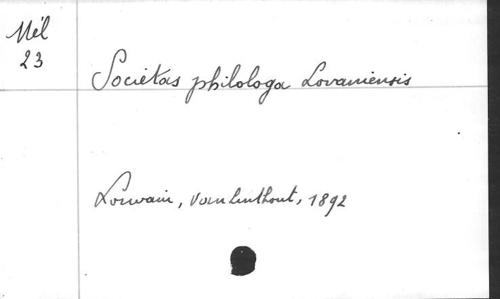 Mél
23
Societas philologa Lovaniensis
Louvain, Vanlinthout, 1892